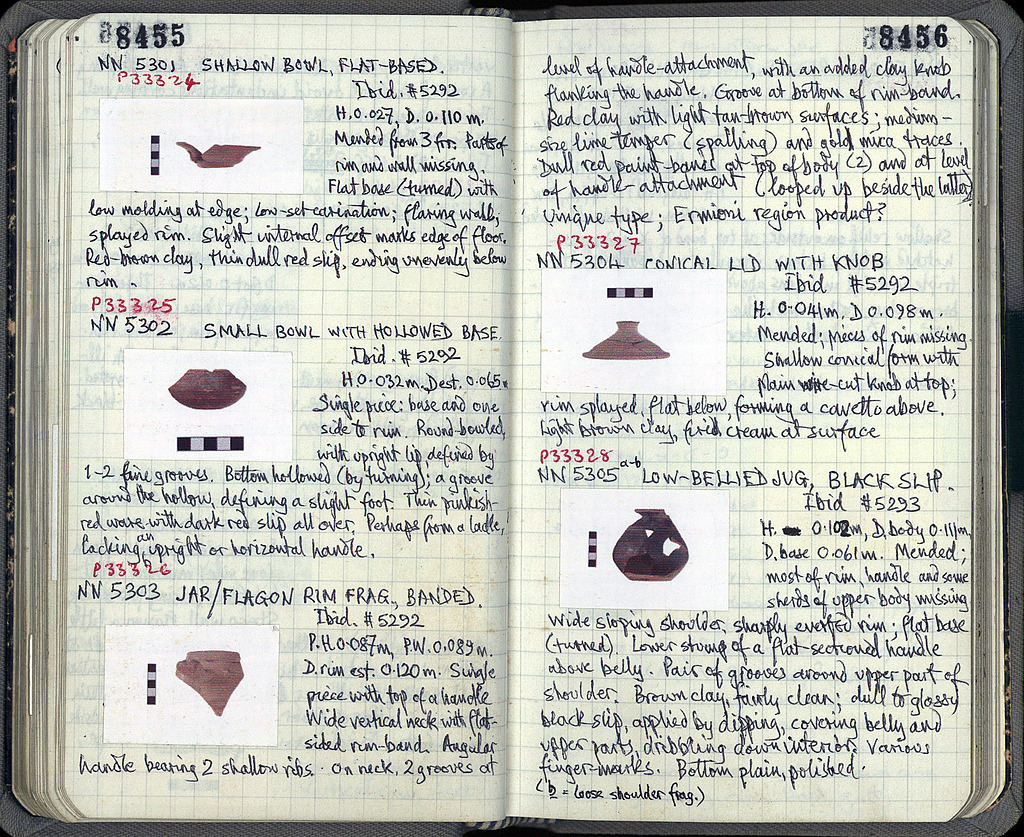 8455
NN 5301 SHALLOW BOWL, FLAT-BASED.
P33324
Ibid. #5292
H. 0.027, D. 0.110 m.
Mended from 3 frr. Parts of
rim and wall missing.
Flat base (turned) with
low molding at edge; low-set carination; flaring wall;
splayed rim. Slight internal offset marks edge of floor.
Red-brown clay, thin dull red slip, ending unevenly below
rim.
P33325
NN 5302 SMALL BOWL WITH HOLLOWED BASE.
Ibid. #5292
H 0.032m. D est. 0.065m
Single piece: base and one
side to rim. Round-bowled,
with upright lip, defined by
1-2 fine grooves. Bottom hollowed (by turning); a groove
around the hollow, defining a slight foot. Thin pinkish-
red ware with dark red slip all over. Perhaps from a ladle,
lacking an upright or horizontal handle.
P33326
NN 5303 JAR/FLAGON RIM FRAG., BANDED.
Ibid. #5292
P.H. 0.087m, P.W. 0.089m.
D. rim est. 0.120m. Single
piece with top of a handle
Wide vertical neck with flat-
sided rim-band. Angular
handle bearing 2 shallow ribs. On neck, 2 grooves at
8456
level of handle-attachment, with an added clay knob
flanking the handle. Groove at bottom of rim-band.
Red clay with light tan-brown surfaces; medium-
size lime temper (spalling) and gold mica traces.
Dull red paint-bands at top of body (2) and at level
of handle-attachment (looped up beside the latter).
Unique type; Ermioni region product?
P33327
NN 5304 CONICAL LID WITH KNOB
Ibid #5292
H. 0.041m, D 0.098m.
Mended; pieces of rim missing.
Shallow conical form with
plain wire-cut knob at top;
rim splayed, flat below, forming a cavetto above.
Light brown clay, fired cream at surface
P33328
NN 5305 a-b LOW-BELLIED JUG, BLACK SLIP.
Ibid #5293
H. 0.102m, D. body 0.111m,
D. base 0.061m. Mended;
most of rim, handle and some
sherds of upper body missing
Wide sloping shoulder, sharply everted rim; flat base
(turned). Lower stump of a flat-sectioned handle
above belly. Pair of grooves around upper part of
shoulder. Brown clay, fairly clean; dull to glossy
black slip, applied by dipping, covering belly and
upper parts, dribbling down interior. Various
finger-marks. Bottom plain, polished.
(b = loose shoulder frag.)